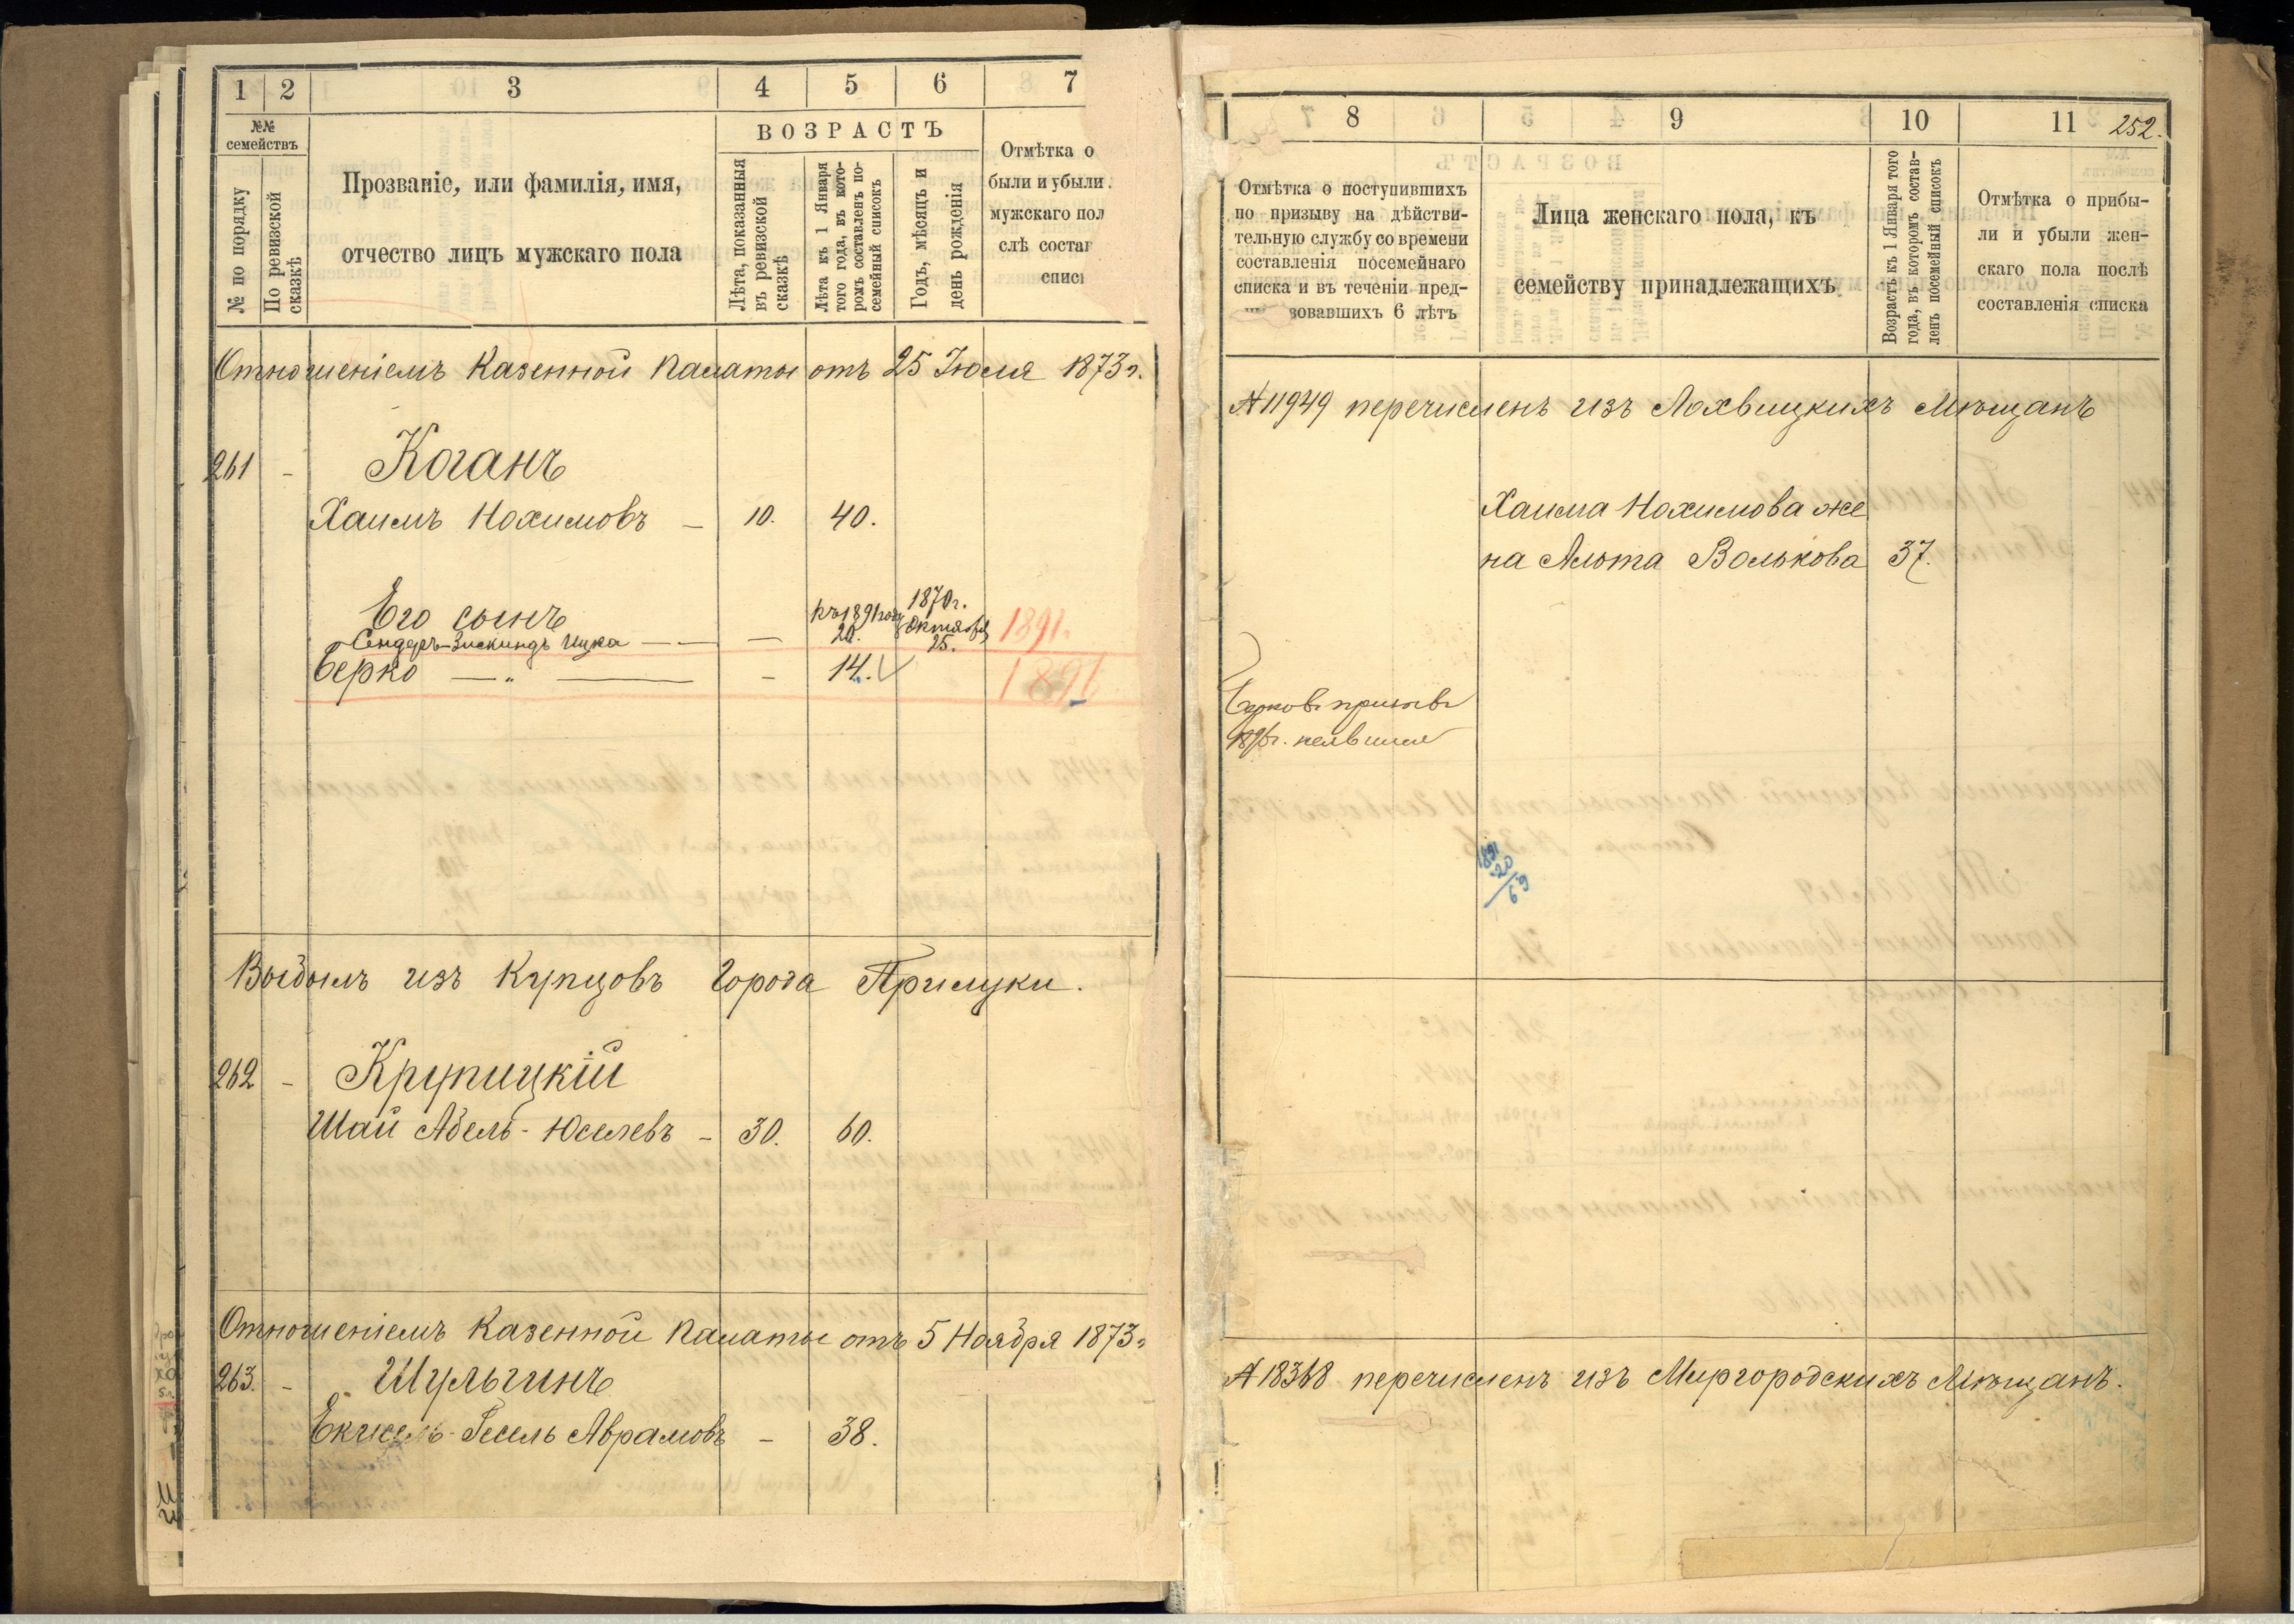 1 2 3 4 5 6 7
№№ семействъ
№ по порядку
По ревизской сказкѣ
Прозваніе, или фамилія, имя,
отчество лицъ мужскаго пола
ВОЗРАСТЪ
Лѣта, показанныя
въ ревизской
сказкѣ
Лѣта къ 1 Января
того года, въ кото-
ромъ составленъ по-
семейный списокъ
Годъ, мѣсяцъ и
день рожденія
Отмѣтка о
были и убыли
мужскаго пол
слѣ состав
списк
Отношеніемъ Казенной Палаты отъ 25 Іюля 1873 г.
261 - Коганъ
Хаимъ Нохимовъ - 10. 40.
Его сынъ
Сендеръ-Зискиндъ Ицка — — къ 1891 году 20. 1870 г. Октября 25. 1891.
Берко — „ — - 14. 1891
Выбылъ изъ Купцовъ Города Прилуки.
262 - Крупицкій
Шай Абель-Юселевъ - 30. 60.
Отношеніемъ Казенной Палаты отъ 5 Ноября 1873 г
263. - Шульгинъ
Екусель-Гесель Аврамовъ - 38.
8 9 10 11 252.
Отмѣтка о поступившихъ
по призыву на дѣйстви-
тельную службу со времени
составленія посемейнаго
списка и въ теченіи пред-
вовавшихъ 6 лѣтъ
Лица женскаго пола, къ
семейству принадлежащихъ
Возрастъ къ 1 Января того
года, въ которомъ состав-
ленъ посемейный списокъ
Отмѣтка о прибы-
ли и убыли жен-
скаго пола послѣ
составленія списка
№ 11949 перечисленъ изъ Лохвицкихъ Мѣщанъ
Хаима Нохимова же
на Альта Волькова 37.
призывъ
1891
20
69
№ 18368 перечисленъ изъ Миргородскихъ Мѣщанъ.